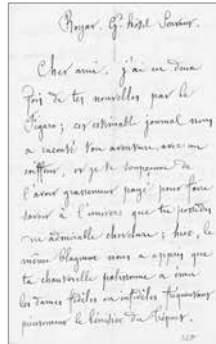 Royat, Gd hôtel Servant.
Cher ami, j'ai eu deux
fois de tes nouvelles par le
Figaro ; cet estimable journal nous
a raconté ton aventure avec un
coiffeur, or je te soupçonne de
l'avoir grassement payé pour faire
savoir à l'univers que tu possèdes
une admirable chevelure ; hier, le
même blagueur nous a appris que
ta chansonnette polissonne a ému
les dames fidèles ou infidèles fréquentant
pieusement le bénitier du Tréport.